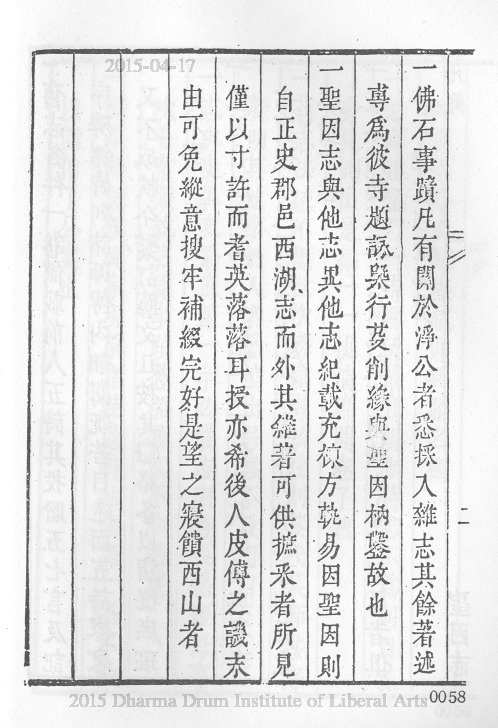 2015-04-17
一佛石事蹟凡有關於淨公者悉採入雜志其餘著述
專爲彼寺題詠槩行芟削緣與聖因枘鑿故也
一聖因志與他志異他志紀載充棟方乾易因聖因則
自正史郡邑西湖志而外其雜著可供摭采者所見
僅以寸許而耆英落落耳授亦希後人皮傅之譏末
由可免縱意搜牢補綴完好是望之寢饋西山者
二
2015 Dharma Drum Institute of Liberal Arts
0058